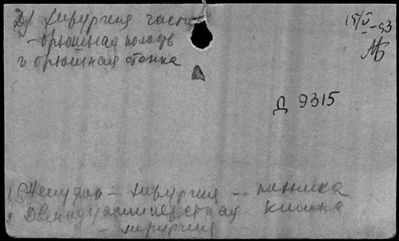 2) хирургия частн
15/V — 53
- брюшная полость
и брюшная стенка
Д 9315
1) Желудок - хирургия - техника
2 Двенадцатиперстная кишка
- хирургия